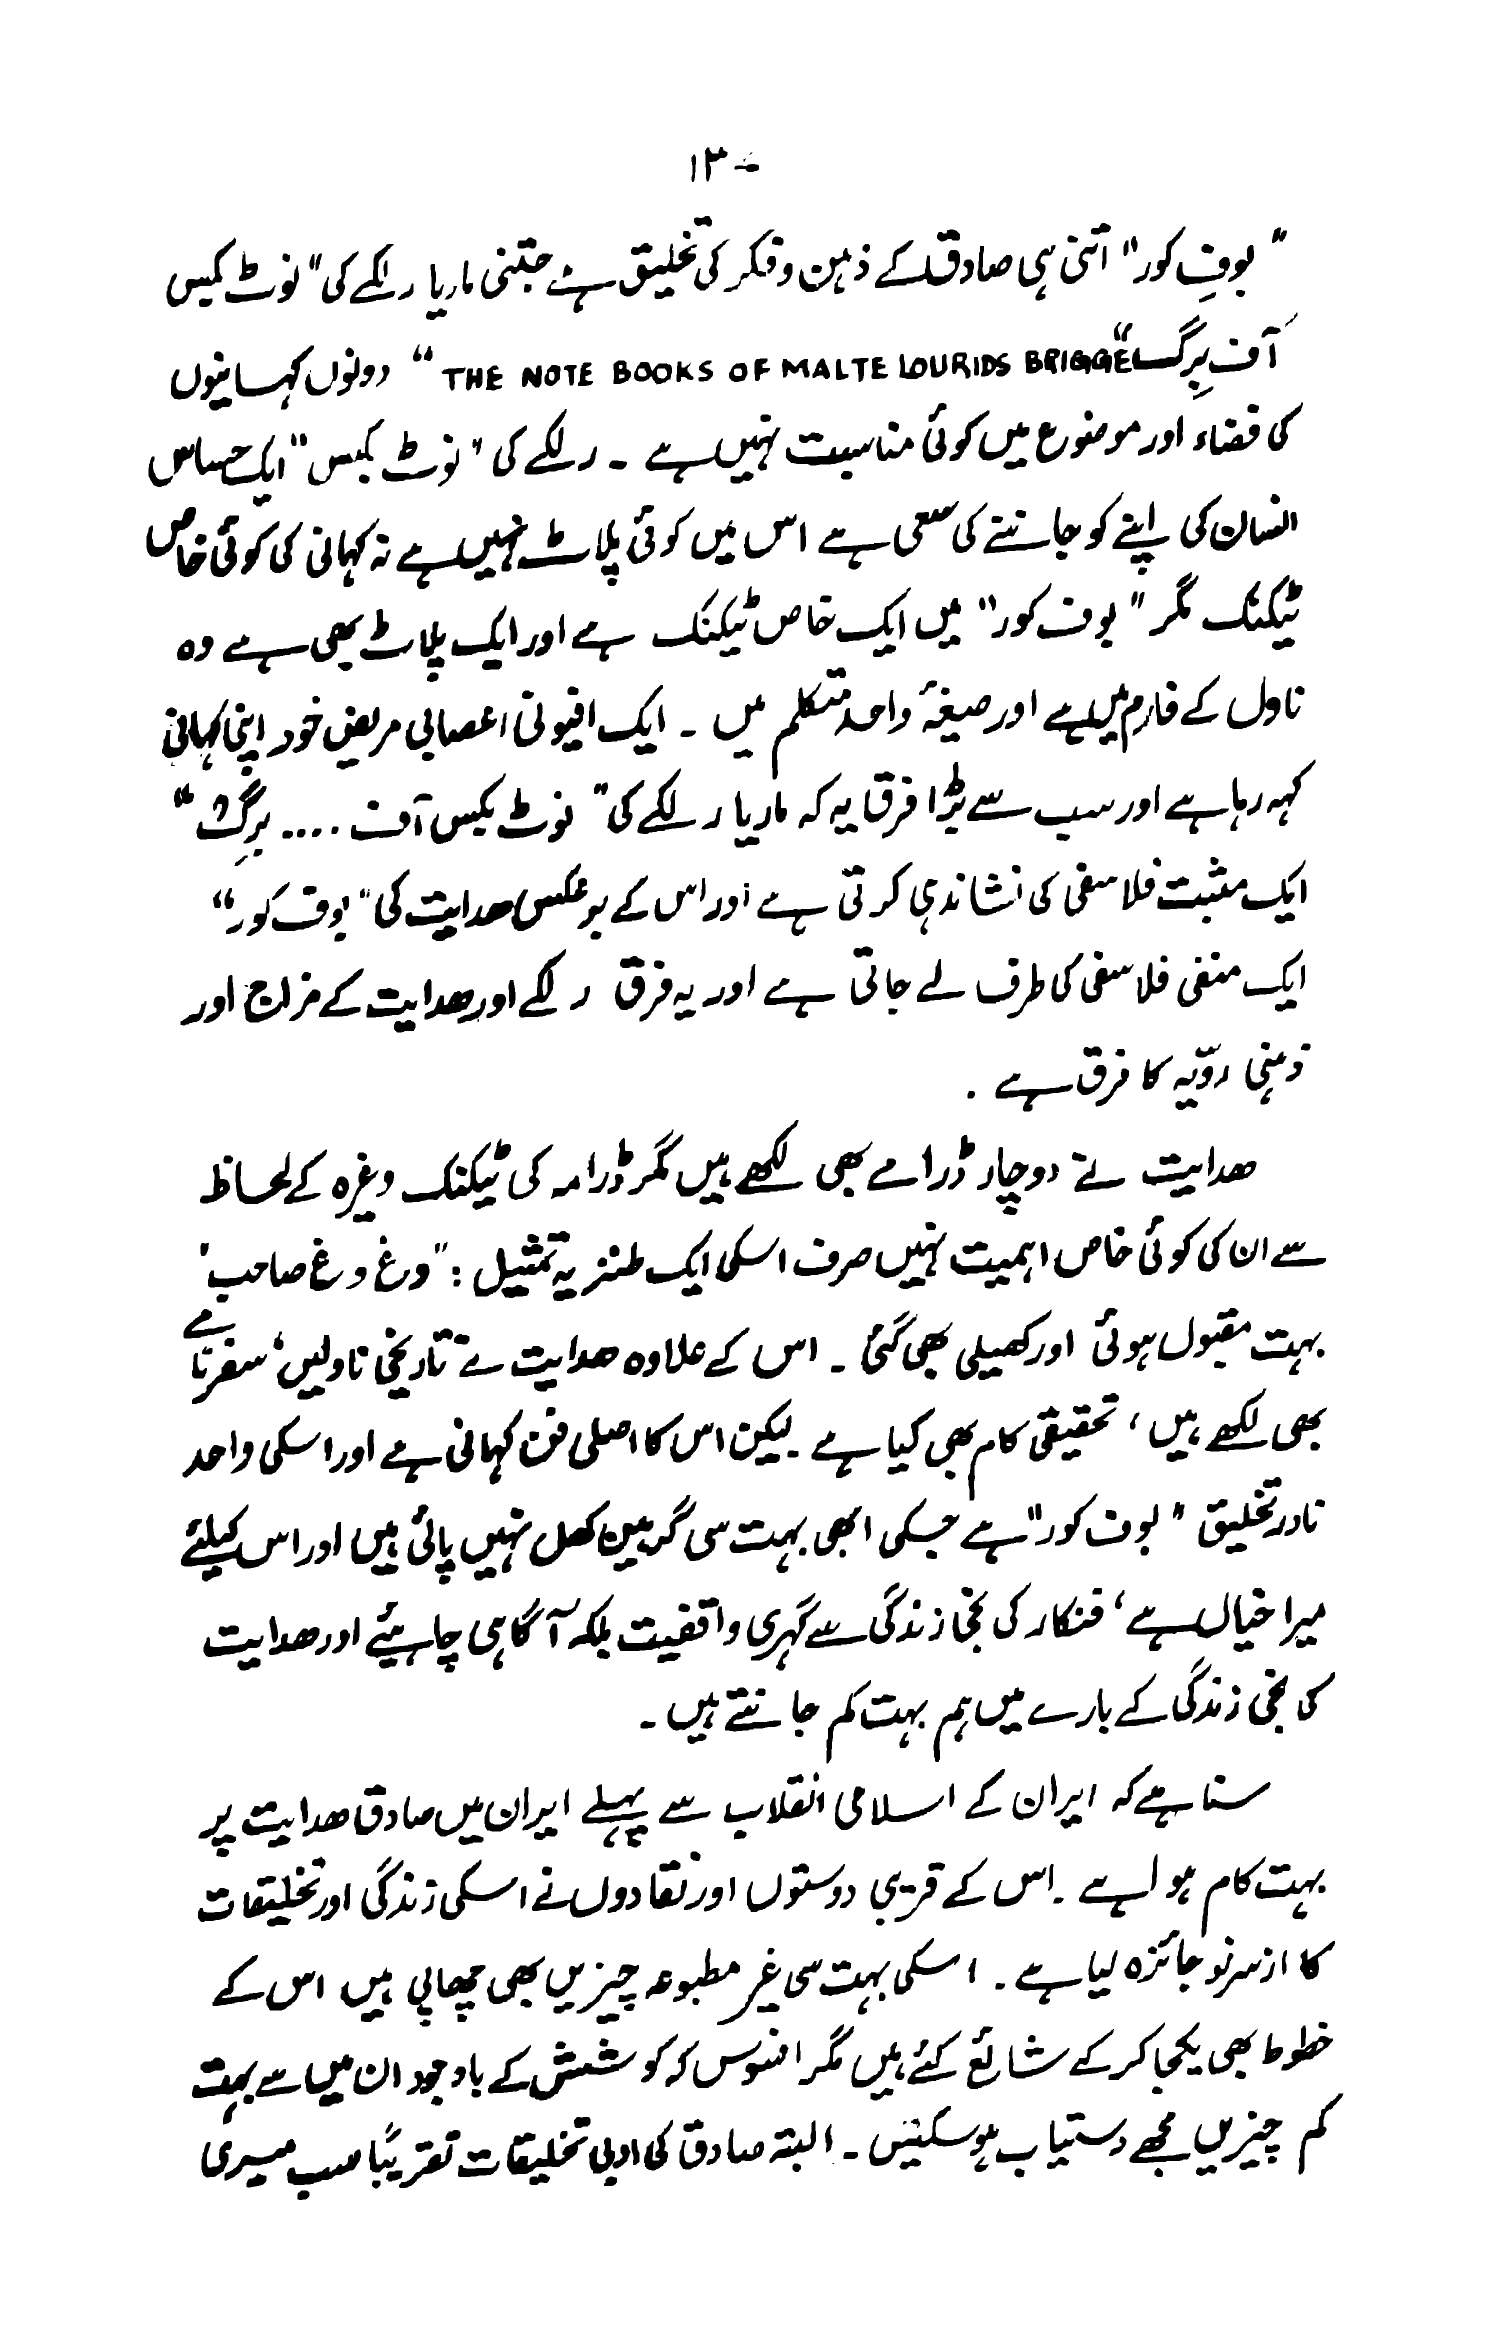 ۱۳
"بوفِ کور" اتنی ہی صادق کے ذہن و فکر کی تخلیق ہے جتنی ماریا رلکے کی "نوٹ بکیس
آف بِرگ" "THE NOTE BOOKS OF MALTE LOURIDS BRIGGE" دونوں کہانیوں
کی فضاء اور موضوع میں کوئی مناسبت نہیں ہے ۔ رلکے کی "نوٹ بکیس" ایک حساس
انسان کی اپنے کو جاننے کی سعی ہے اس میں کوئی پلاٹ نہیں ہے نہ کہانی کی کوئی خاص
ٹیکنک مگر "بوف کور" میں ایک خاص ٹیکنک ہے اور ایک پلاٹ بھی ہے وہ
ناول کے فارم میں ہے اور صیغۂ واحد متکلم میں ۔ ایک افیونی اعصابی مریض خود اپنی کہانی
کہہ رہا ہے اور سب سے بڑا فرق یہ کہ ماریا رلکے کی "نوٹ بکیس آف .... برِگ"
ایک مثبت فلاسفی کی نشاندہی کرتی ہے اور اس کے برعکس ھدایت کی "بوف کور"
ایک منفی فلاسفی کی طرف لے جاتی ہے اور یہ فرق رلکے اور ھدایت کے مزاج اور
ذہنی رویّہ کا فرق ہے ۔
ھدایت نے دو چار ڈرامے بھی لکھے ہیں مگر ڈرامہ کی ٹیکنک وغیرہ کے لحاظ
سے ان کی کوئی خاص اہمیت نہیں صرف اسکی ایک طنزیہ تمثیل : "وغ وغ صاحب'
بہت مقبول ہوئی اور کھیلی بھی گئی ۔ اس کے علاوہ ھدایت نے تاریخی ناولیں، سفرنامے
بھی لکھے ہیں، تحقیقی کام بھی کیا ہے ۔ لیکن اس کا اصلی فن کہانی ہے اور اسکی واحد
نادر تخلیق "بوف کور" ہے جسکی ابھی بہت سی گرہیں کھل نہیں پائی ہیں اور اس کیلئے
میرا خیال ہے، فنکار کی نجی زندگی سے گہری واقفیت بلکہ آگاہی چاہیئے اور ھدایت
کی نجی زندگی کے بارے میں ہم بہت کم جانتے ہیں ۔
سنا ہے کہ ایران کے اسلامی انقلاب سے پہلے ایران میں صادق ھدایت پر
بہت کام ہوا ہے ۔ اس کے قریبی دوستوں اور نقادوں نے اسکی زندگی اور تخلیقات
کا از سر نو جائزہ لیا ہے ۔ اسکی بہت سی غیر مطبوعہ چیزیں بھی چھاپی ہیں اس کے
خطوط بھی یکجا کر کے شائع کئے ہیں مگر افسوس کہ کوشش کے باوجود ان میں سے بہت
کم چیزیں مجھے دستیاب ہو سکیں ۔ البتہ صادق کی ادبی تخلیقات تقریباً سب میری